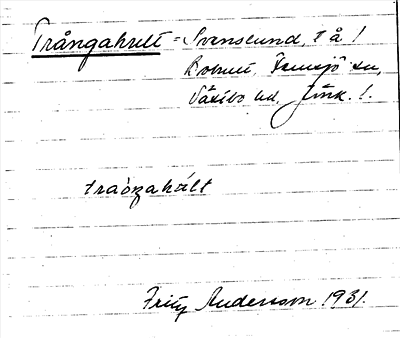 Trångahult = Svenslund, t å!
Rolrud, Femsjö sn,
Västbo hd, Jönk.!.
traŋgahúlt
Fritz Andersson 1931.